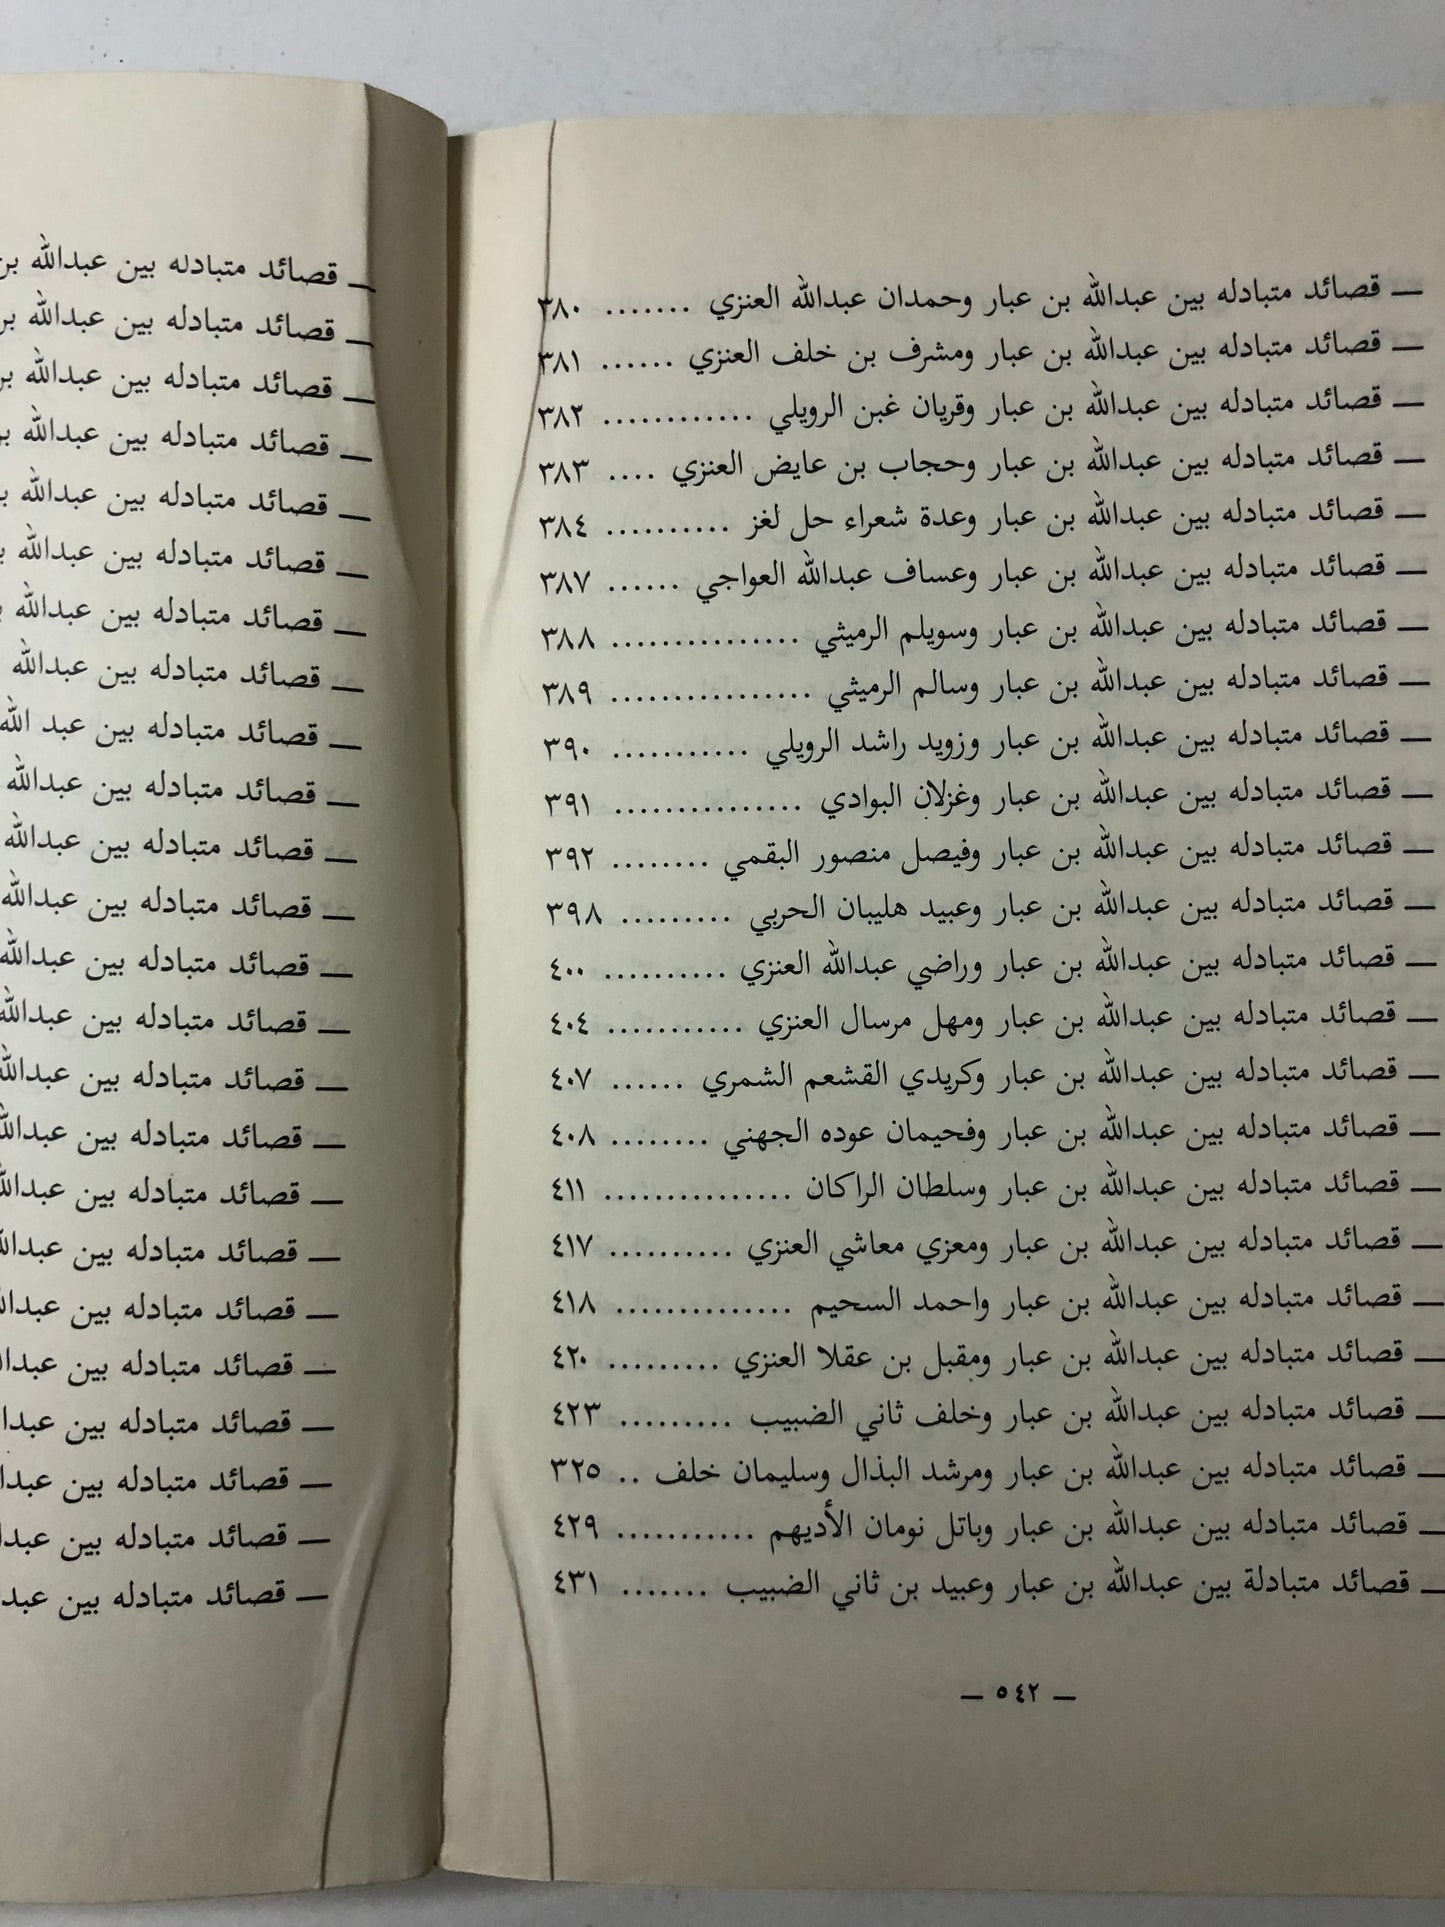 — قصائد متبادله بين عبدالله بن عبار وحمدان عبدالله العنزي ....... ٣٨٠
— قصائد متبادله بين عبدالله بن عبار ومشرف بن خلف العنزي ...... ٣٨١
— قصائد متبادله بين عبدالله بن عبار وقريان غبن الرويلي ............ ٣٨٢
— قصائد متبادله بين عبدالله بن عبار وحجاب بن عايض العنزي .... ٣٨٣
— قصائد متبادله بين عبدالله بن عبار وعدة شعراء حل لغز .......... ٣٨٤
— قصائد متبادله بين عبدالله بن عبار وعساف عبدالله العواجي ...... ٣٨٧
— قصائد متبادله بين عبدالله بن عبار وسويلم الرميثي ............... ٣٨٨
— قصائد متبادله بين عبدالله بن عبار وسالم الرميثي ................ ٣٨٩
— قصائد متبادله بين عبدالله بن عبار وزويد راشد الرويلي ........... ٣٩٠
— قصائد متبادله بين عبدالله بن عبار وغزلان البوادي ............... ٣٩١
— قصائد متبادله بين عبدالله بن عبار وفيصل منصور البقمي ........ ٣٩٢
— قصائد متبادله بين عبدالله بن عبار وعبيد هليبان الحربي ......... ٣٩٨
— قصائد متبادله بين عبدالله بن عبار وراضي عبدالله العنزي .......... ٤٠٠
— قصائد متبادله بين عبدالله بن عبار ومهل مرسال العنزي ........... ٤٠٤
— قصائد متبادله بين عبدالله بن عبار وكريدي القشعم الشمري ...... ٤٠٧
— قصائد متبادله بين عبدالله بن عبار وفحيمان عوده الجهني ........ ٤٠٨
— قصائد متبادله بين عبدالله بن عبار وسلطان الراكان ............... ٤١١
— قصائد متبادله بين عبدالله بن عبار ومعزي معاشي العنزي .......... ٤١٧
— قصائد متبادله بين عبدالله بن عبار واحمد السحيم .............. ٤١٨
— قصائد متبادله بين عبدالله بن عبار ومقبل بن عقلا العنزي ......... ٤٢٠
— قصائد متبادله بين عبدالله بن عبار وخلف ثاني الضبيب ......... ٤٢٣
— قصائد متبادله بين عبدالله بن عبار ومرشد البذال وسليمان خلف .. ٣٢٥
— قصائد متبادله بين عبدالله بن عبار وباتل نومان الأديهم ........... ٤٢٩
— قصائد متبادلة بين عبدالله بن عبار وعبيد بن ثاني الضبيب ....... ٤٣١
— ٥٤٢ —
— قصائد متبادله بين عبدالله بن
— قصائد متبادله بين عبدالله
— قصائد متبادله بين عبدالله
— قصائد متبادله بين عبدالله
— قصائد متبادله بين عبدالله
— قصائد متبادله بين عبدالله
— قصائد متبادله بين عبدالله
— قصائد متبادله بين عبدالله
— قصائد متبادله بين عبد الله
— قصائد متبادله بين عبدالله
— قصائد متبادله بين عبدالله
— قصائد متبادله بين عبدالله
— قصائد متبادله بين عبدالله
— قصائد متبادله بين عبدالله
— قصائد متبادله بين عبدالله
— قصائد متبادله بين
— قصائد متبادله بين
— قصائد متبادله بين
— قصائد متبادله بين
— قصائد متبادله بين
— قصائد متبادله بين
— قصائد متبادله بين
— قصائد متبادله بين
— قصائد متبادله بين